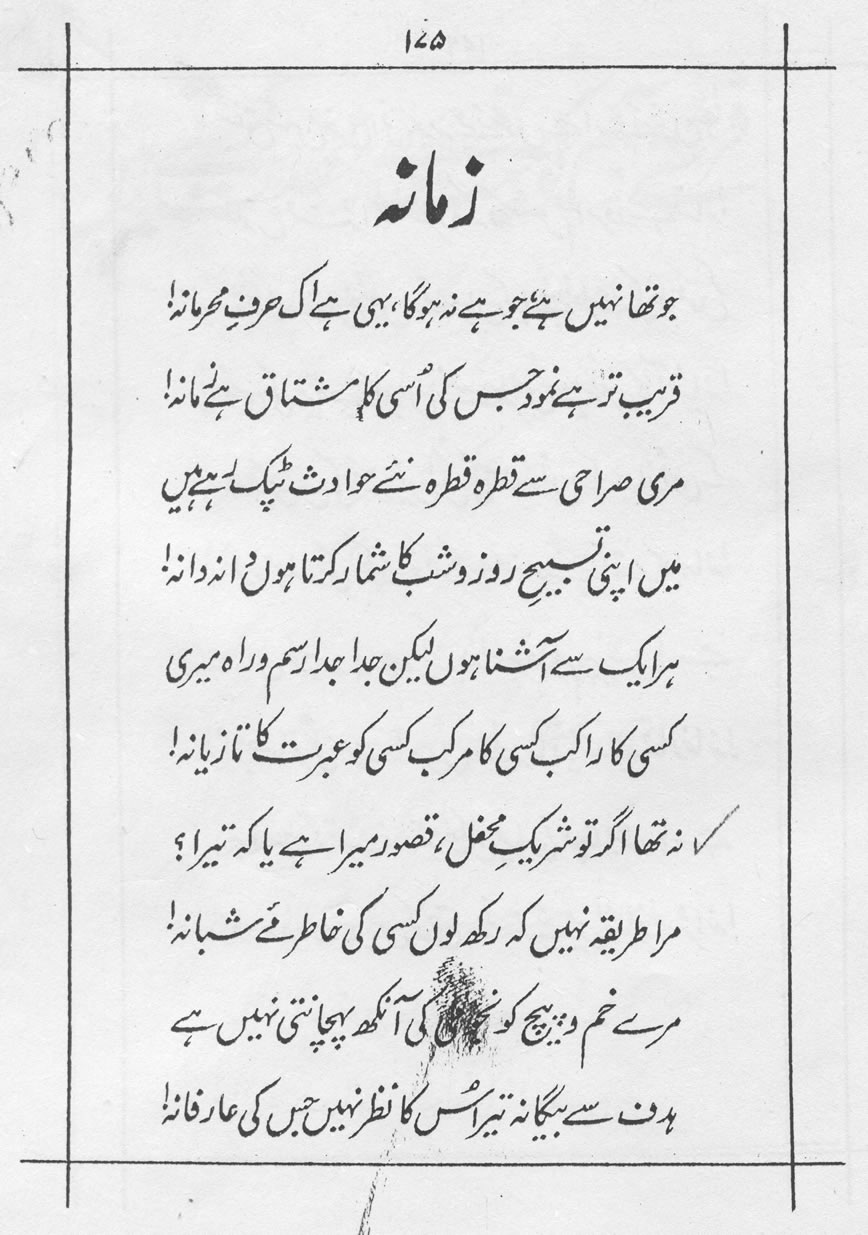 ۱۷۵
زمانہ
جو تھا نہیں ہے، جو ہے نہ ہوگا، یہی ہے اک حرفِ محرمانہ!
قریب تر ہے نمود جس کی اُسی کا مشتاق ہے زمانہ!
مری صراحی سے قطرہ قطرہ نئے حوادث ٹپک رہے ہیں
میں اپنی تسبیحِ روز و شب کا شمار کرتا ہوں دانہ دانہ!
ہر ایک سے آشنا ہوں لیکن جدا جدا رسم و راہ میری
کسی کا راکب کسی کا مرکب کسی کو عبرت کا تازیانہ!
نہ تھا اگر تو شریکِ محفل، قصور میرا ہے یا کہ تیرا؟
مرا طریقہ نہیں کہ رکھ لوں کسی کی خاطر مئے شبانہ!
مرے خم و پیچ کو کی آنکھ پہچانتی نہیں ہے
ہدف سے بیگانہ تیر اُس کا نظر نہیں جس کی عارفانہ!